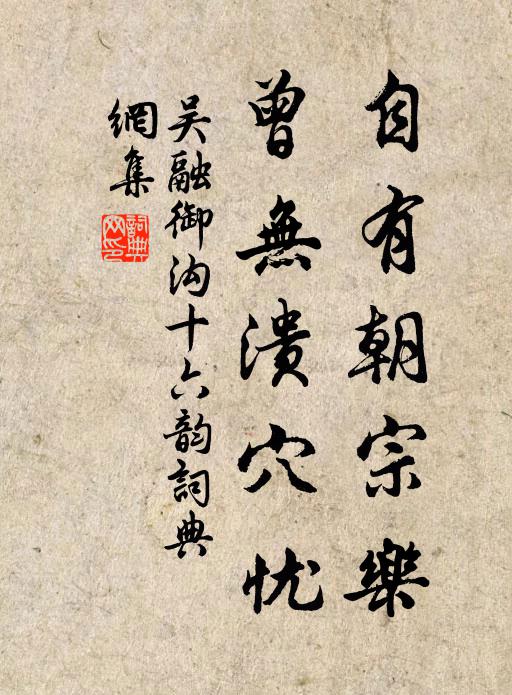 自有朝宗樂
曾無潰穴忧
吴融御沟十六韵詞典
網集
詞典网印